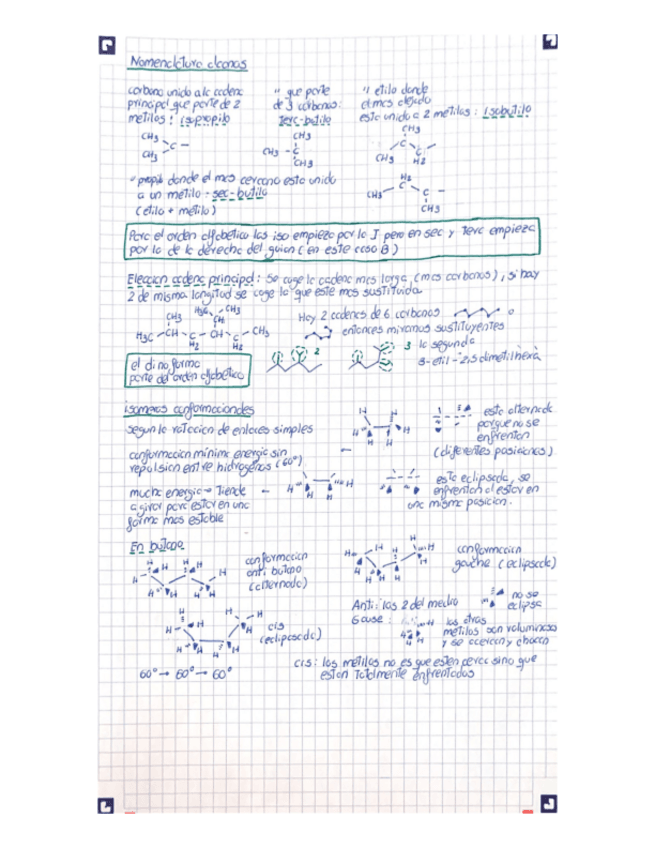 Nomenclatura alcanos
carbono unido a la cadena
principal que parte de 2
metilos : isopropilo
" que parte
de 3 carbonos:
terc-butilo
" etilo donde
el mas alejado
esta unido a 2 metilos : isobutilo
CH3
CH3
C
CH3
CH3 - C
CH3
CH3
C
C
CH3
H2
" propilo donde el mas cercano esta unido
a un metilo : sec-butilo
(etilo + metilo)
H2
C
CH3
C
CH3
Para el orden alfabetico las iso empieza por la I pero en sec y terc empieza
por la de la derecha del guion (en este caso B)
Eleccion cadena principal : Se coge la cadena mas larga (mas carbonos), si hay
2 de misma longitud se coge la que este mas sustituida
H3C
CH3
CH3
CH2
H3C
CH
C
H2
CH
C
H2
CH3
Hay 2 cadenas de 6 carbonos
o
entonces miramos sustituyentes
2
3
la segunda
3-etil-2,5 dimetilhexa
el di no forma
parte del orden alfabetico
isomeros conformacionales
segun la rotacion de enlaces simples
conformacion minima energia sin
repulsion entre hidrogenos (60°)
H
H
H
H
esta alternada
porque no se
enfrentan
(diferentes posiciones)
mucha energia → Tiende
a girar para estar en una
forma mas estable
H
H
H
H
esta eclipsada, se
enfrentan al estar en
una misma posicion.
En butano
conformacion
anti butano
(alternada)
conformacion
gauche (eclipsada)
cis
(eclipsada)
Anti: las 2 del medio
no se
eclipsa
Gause :
las otras
metilos son voluminosos
y se acercan y chocan
cis : los metilos no es que esten cerca sino que
estan totalmente enfrentados
60° → 60° → 60°